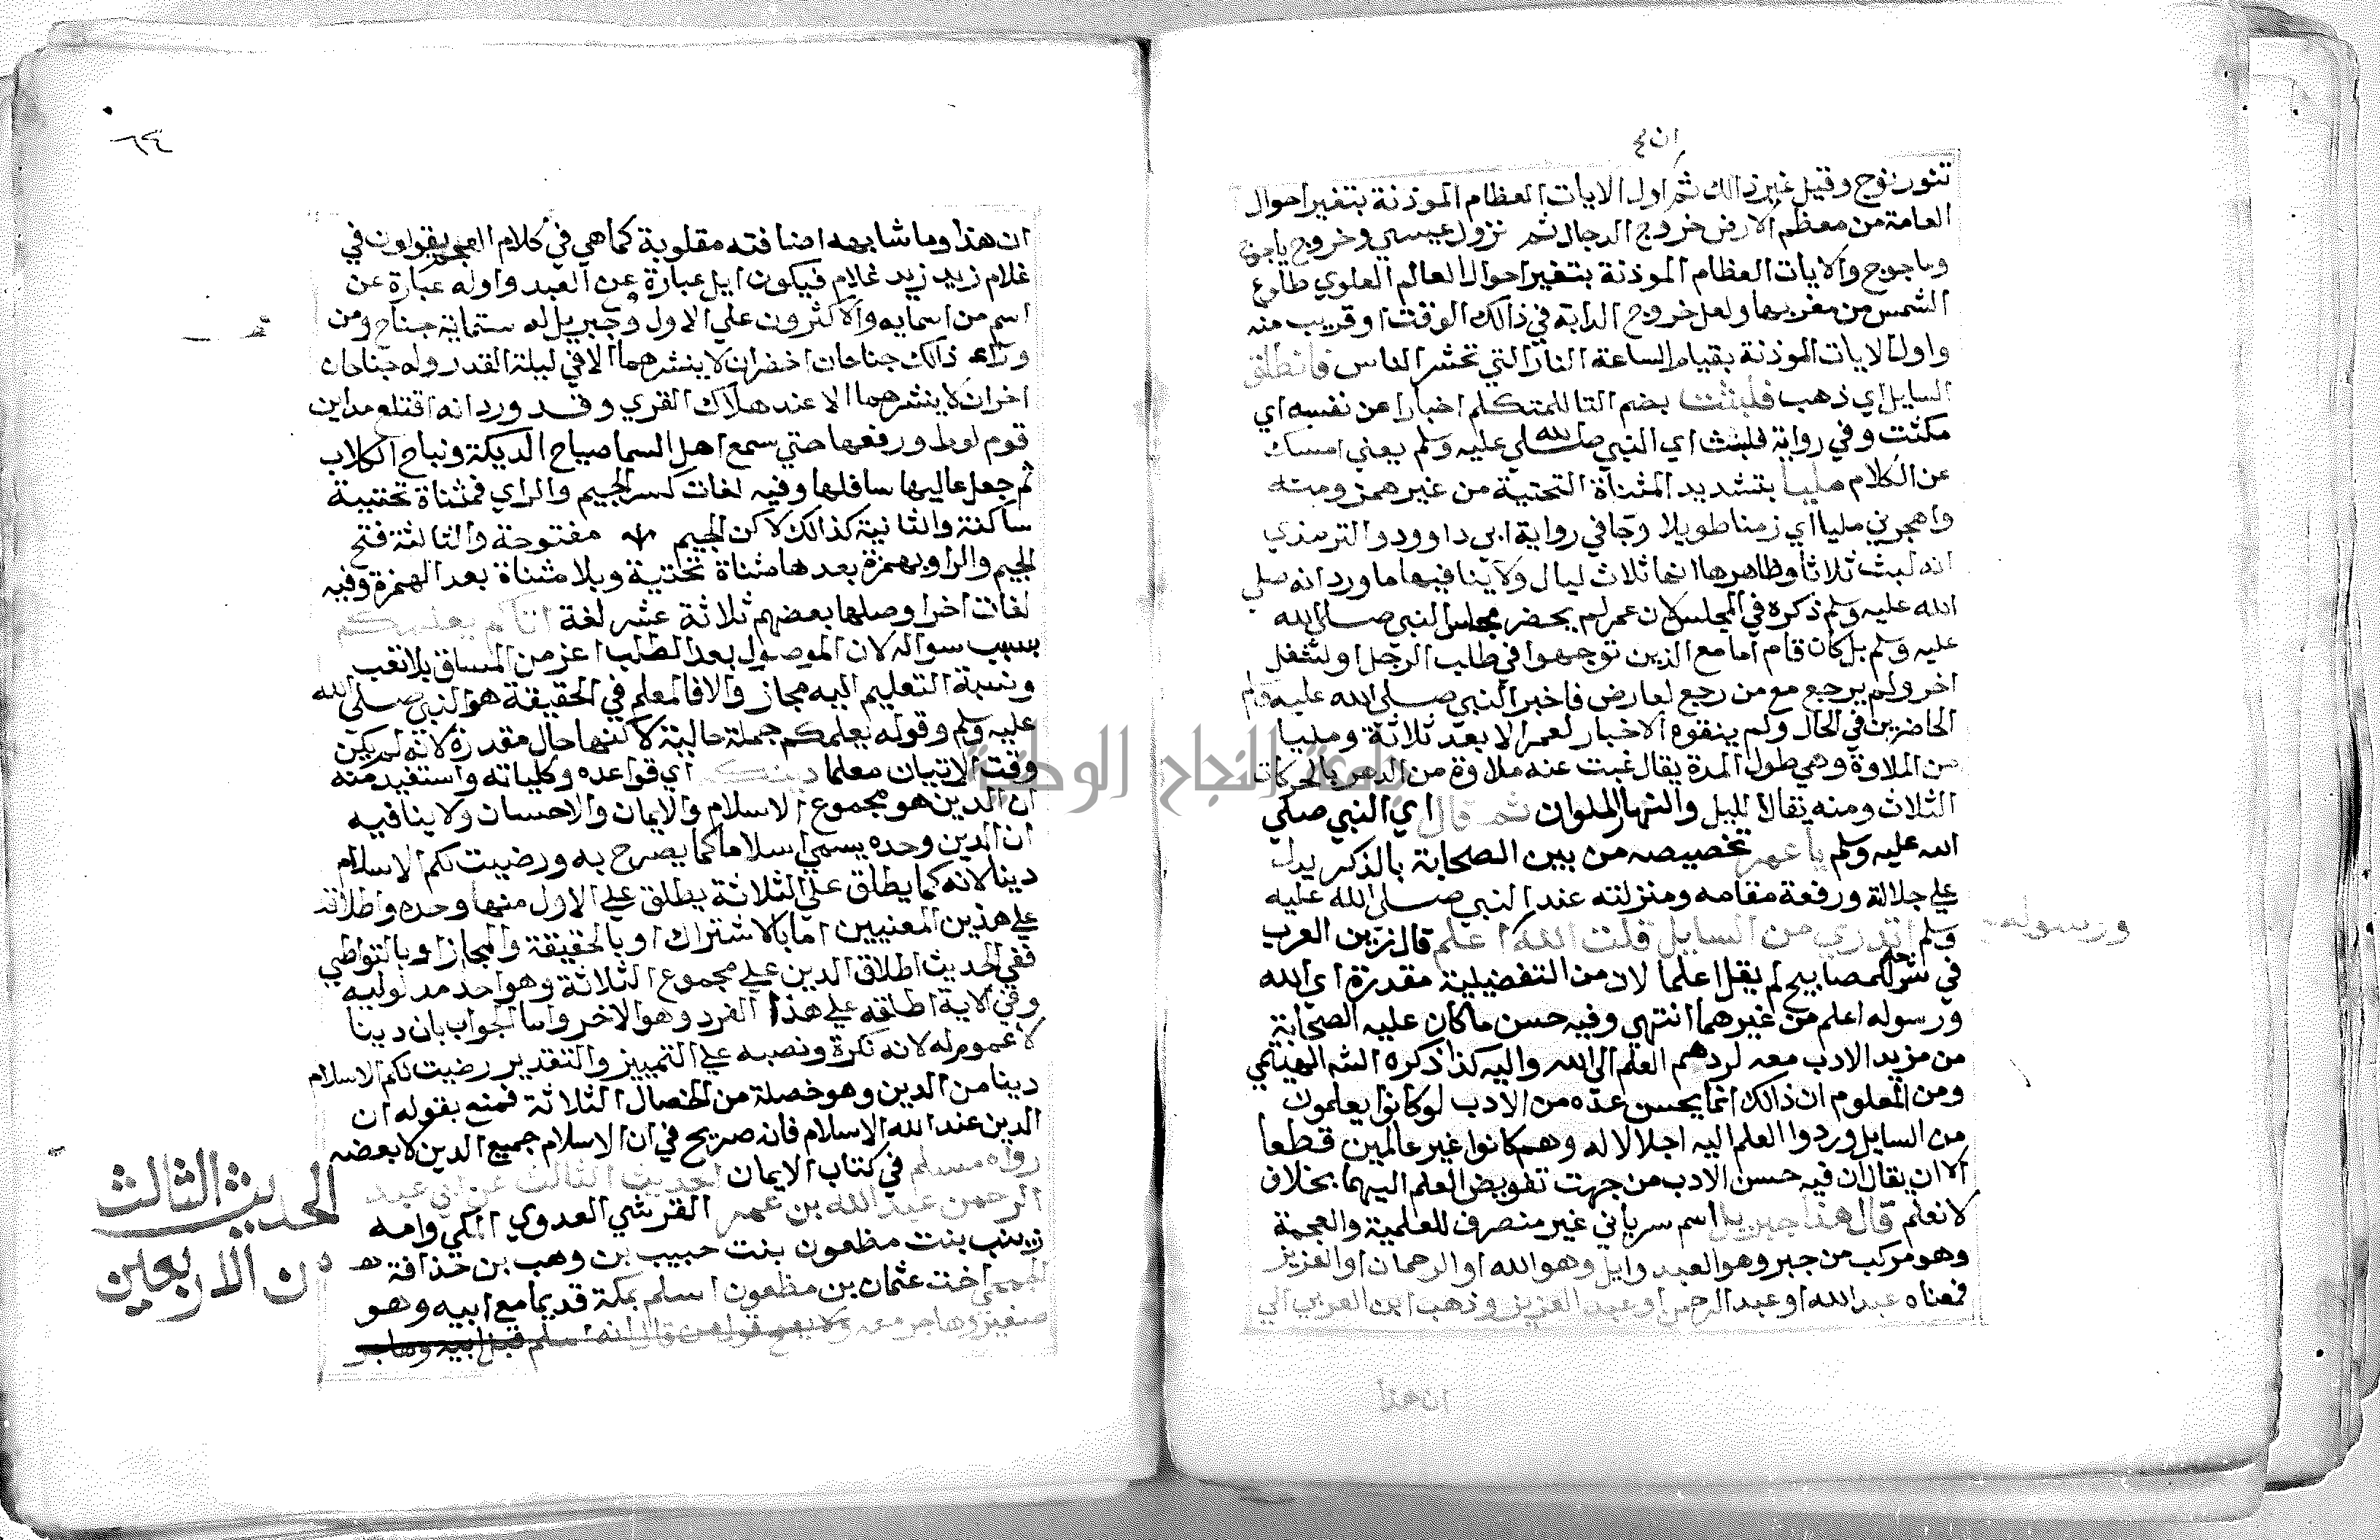 تنور نوح وقيل غير ذالك ثم اول الايات العظام الموذنة بتغير احوال
العامة من معظم الارض خروج الدجال ثم نزول عيسي وخروج ياجوج
وماجوج والايات العظام الموذنة بتغير احوال العالم العلوي طلوع
الشمس من مغربها ولعل خروج الدابة في ذالك الوقت او قريب منه
واول الايات الموذنة بقيام الساعة النار التي تحشر الناس فانطلق
السايل اي ذهب فلبثت بضم التا للمتكلم اخبارا عن نفسه اي
مكثت وفي رواية فلبث اي النبي صلي الله عليه وسلم يعني امسك
عن الكلام مليا بتشديد المثناة التحتية من غير همز ومنه
واهجرني مليا اي زمنا طويلا وجا في رواية ابي داوود والترمذي
انه لبث ثلاثا وظاهرها انها ثلاث ليال ولا ينافيها ما ورد انه صلي
الله عليه وسلم ذكره في المجلس لان عمر لم يحضر مجلس النبي صلي الله
عليه وسلم بل كان قام اما مع الذين توجهوا في طلب الرجل او لشغل
اخر ولم يرجع مع من رجع لعارض فاخبر النبي صلي الله عليه وسلم
الحاضرين في الحال ولم يتفوه الاخبار لعمر الا بعد ثلاثة ومليا
من الملاوة وهي طول المدة يقال غبت عنه ملاوة من الدهر بالحركات
الثلاث ومنه يقال لليل والنهار الملوان ثم قال اي النبي صلي
الله عليه وسلم يا عمر تخصيصه من بين الصحابة بالذكر يدل
علي جلالة ورفعة مقامه ومنزلته عند النبي صلي الله عليه
وسلم اتدري من السايل قلت الله اعلم قال زين العرب
ورسوله
في شرح المصابيح لم يقل اعلما لان من التفضيلية مقدرة اي الله
ورسوله اعلم من غيرهما انتهي وفيه حسن ما كان عليه الصحابة
من مزيد الادب معه لردهم العلم الي الله واليه كذا ذكره الشه الهيتمي
ومن المعلوم ان ذالك انما يحسن عده من الادب لو كانوا يعلمون
من السايل وردوا العلم اليه اجلالا له وهم كانوا غير عالمين قطعا
الا ان يقال ان فيه حسن الادب من جهت تفويض العلم اليهما بخلاف
لا نعلم قال هذا جبريل اسم سرياني غير منصرف للعلمية والعجمة
وهو مركب من جبر وهو العبد وايل وهو الله او الرحمان او العزيز
فمعناه عبد الله او عبد الرحمن او عبد العزيز وذهب ابن العربي الي
ان هذا
٦٤
ان هذا وما شابهه اضافته مقلوبة كما هي في كلام العجم يقولون في
غلام زيد زيد غلام فيكون ايل عبارة عن العبد واوله عبارة عن
اسم من اسمايه والاكثرون علي الاول وجبريل له ستماية جناح ومن
وراء ذالك جناحان اخضران لا ينشرهما الا في ليلة القدر وله جناحان
اخران لا ينشرهما الا عند هلاك القري وقد ورد انه اقتلع مداين
قوم لوط ورفعها حتي سمع اهل السما صياح الديكة ونباح الكلاب
ثم جعل عاليها سافلها وفيه لغات كسر الجيم والراي فمثناة تحتية
ساكنة والثانية كذالك لاكن الجيم مفتوحة والثالثة فتح
الجيم والرا وبهمزة بعدها مثناة تحتية وبلا مثناة بعد الهمزة وفيه
لغات اخر اوصلها بعضهم ثلاثة عشر لغة اتاكم يعلمكم
بسبب سواله لان الموصول بعد الطلب اعز من المنساق بلا تعب
ونسبة التعليم اليه مجاز والا فالمعلم في الحقيقة هو النبي صلي الله
عليه وسلم وقوله يعلمكم جملة حالية لاكنها حال مقدرة لانه لم يكن
وقت الاتيان معلما دينكم اي قواعده وكلياته واستفيد منه
ان الدين هو مجموع الاسلام والايمان والاحسان ولا ينافيه
ان الدين وحده يسمي اسلاما كما يصرح به ورضيت لكم الاسلام
دينا لانه كما يطلق علي الثلاثة يطلق علي الاول منها وحده واطلاقه
علي هذين المعنيين اما بالاشتراك او بالحقيقة والمجاز او بالتواطي
ففي الحديث اطلاق الدين علي مجموع الثلاثة وهو احد مدلوليه
وفي الاية اطلقه علي هذا الفرد وهو الاخر واما الجواب بان دينا
لا عموم له لانه نكرة ونصبه علي التمييز والتقدير رضيت لكم الاسلام
دينا من الدين وهو خصلة من الخصال الثلاثة فمنع بقوله ان
الدين عند الله الاسلام فانه صريح في ان الاسلام جميع الدين لا بعضه
رواه مسلم في كتاب الايمان الحديث الثالث عن ابي عبد
الرحمن عبد الله بن عمر القرشي العدوي المكي وامه
زينب بنت مظعون بنت حبيب بن وهب بن حذافة
الجمحي اخت عثمان بن مظعون اسلم بمكة قديما مع ابيه وهو
صغير وهاجر معه ولا يصح قول من قال انه اسلم قبل ابيه وهاجر
الحديث الثالث
من الاربعين
جامعة النجاح الوطنية